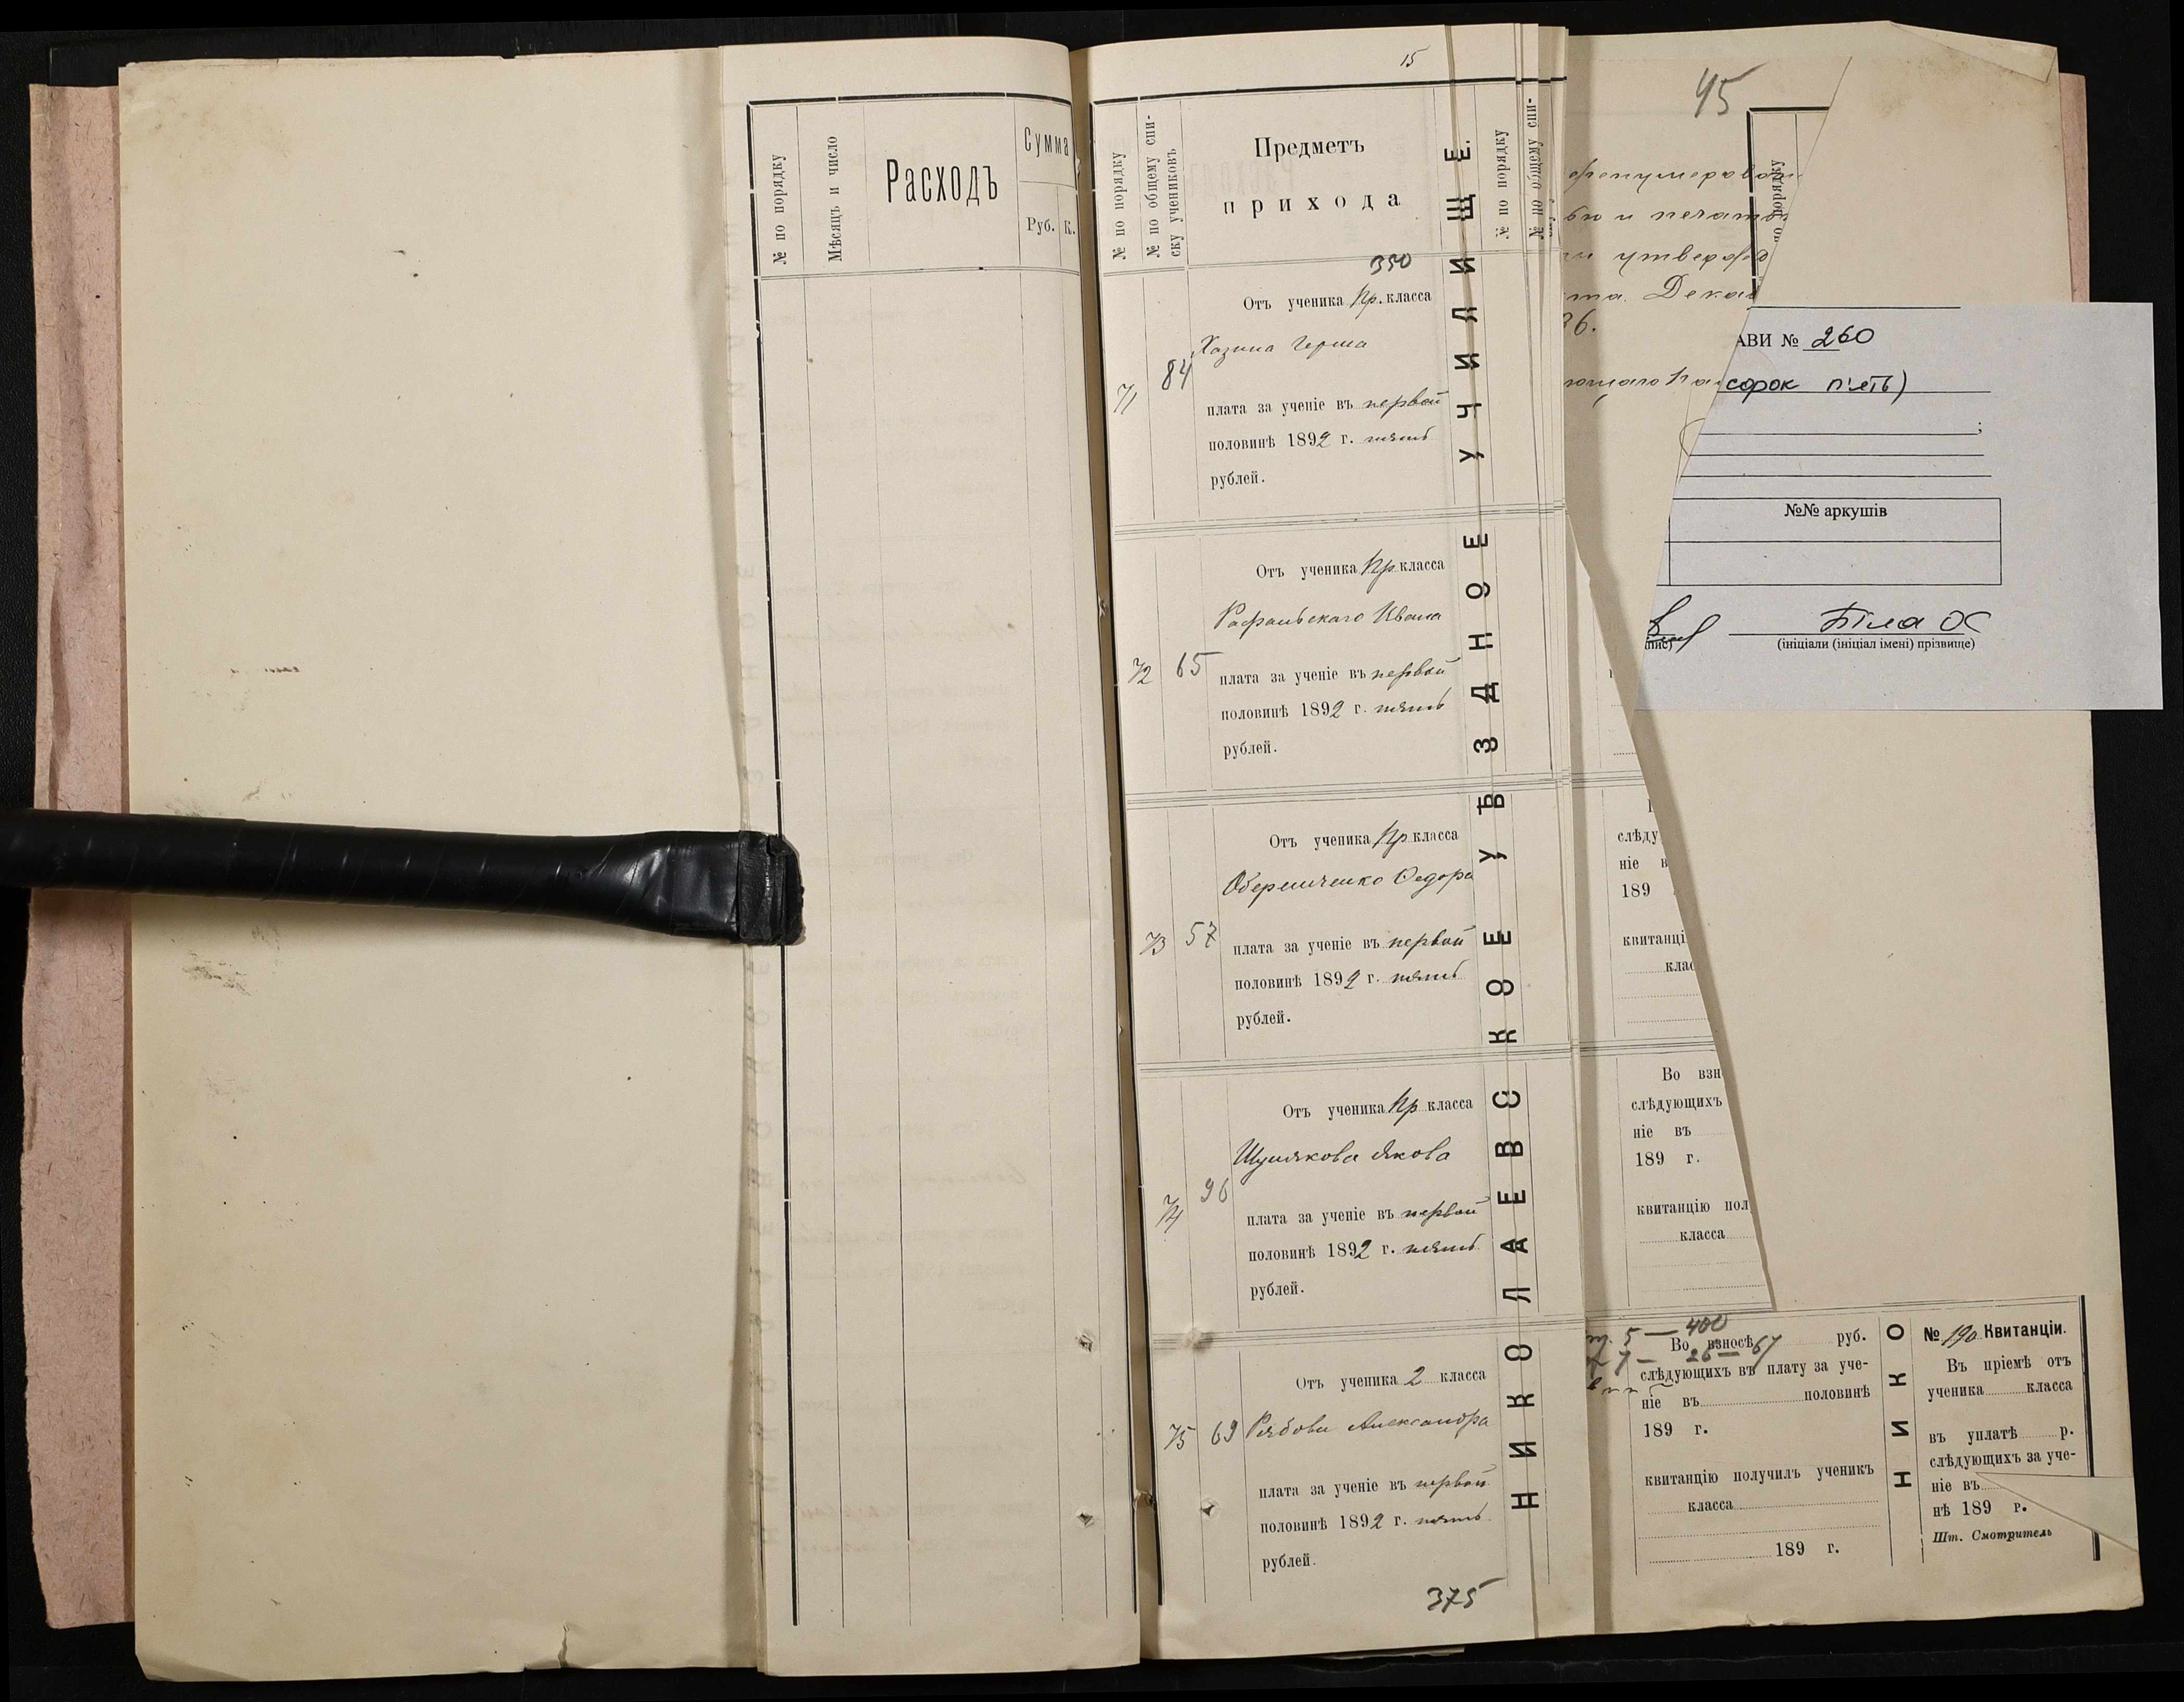 № по порядку
Мѣсяцъ и число
Расходъ
Сумма
Руб. К.
15
№ по порядку
№ по общему спи-
ску учениковъ
Предметъ
прихода
№ по порядку
№ по общему спи-
350
Отъ ученика Пр. класса
Хазина Герша
71 84
плата за ученіе въ первой
половинѣ 1892 г. пять
рублей.
Отъ ученика Пр класса
Рафальскаго Ивана
72 65
плата за ученіе въ первой
половинѣ 1892 г. пять
рублей.
Отъ ученика Пр класса
Оберемченко Федора
73 57
плата за ученіе въ первой
половинѣ 1892 г. пять
рублей.
Отъ ученика Пр класса
Шумякова Якова
74 96
плата за ученіе въ первой
половинѣ 1892 г. пять
рублей.
Отъ ученика 2 класса
75 69 Рябова Александра
плата за ученіе въ первой
половинѣ 1892 г. пять
рублей.
375
НИКОЛАЕВСКОЕ УѢЗДНОЕ УЧИЛИЩЕ.
45
по порядку
и печать
утверж
та. Декаб
26.
АВИ № 260
сорок п'ять)
;
№№ аркушів
Біла ОС
пис)
(ініціали (ініціал імені) прізвище)
слѣду
ніе в
189
квитанці
клас
Во взн
слѣдующихъ
ніе въ
189 г.
квитанцію пол
класса
5 — 400
Во взносѣ 67 руб.
7 — 26 —
слѣдующихъ въ плату за уче-
ніе въ половинѣ
189 г.
квитанцію получилъ ученикъ
класса
189 г.
НИКО
№ 190 Квитанціи.
Въ пріемѣ отъ
ученика класса
въ уплатѣ р.
слѣдующихъ за уче-
ніе въ
нѣ 189 г.
Шт. Смотритель